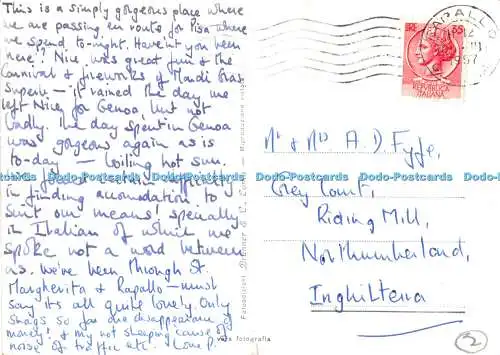 This is a simply gorgeous place where
we are passing en route for Pisa where
we spend to-night. Haven't you been
here? Nice was great fun & the
Carnival & fireworks of Mardi Gras
superb — it rained the day we
left Nice for Genoa, but not
badly. The day spent in Genoa
was gorgeous again as is
to-day — boiling hot sun.
in finding accomodation to
suit our means! specially
in Italian of which we
spoke not a word between
us. We've been through St.
Margherita & Rapallo — must
say it's all quite lovely. Only
snags so far are disappearing
money! & my not sleeping cause of
noise of traffic etc. Love P.
RAPALLO
12
1957
LIRE 35
REPVBBLICA
ITALIANA
Mr & Mrs A. D Fyfe,
Grey Court,
Riding Mill,
Northumberland,
Inghilterra
vera fotografia
2
Dodo-Postcards Dodo-Postcards Dodo-Postcards Dodo-Postcards